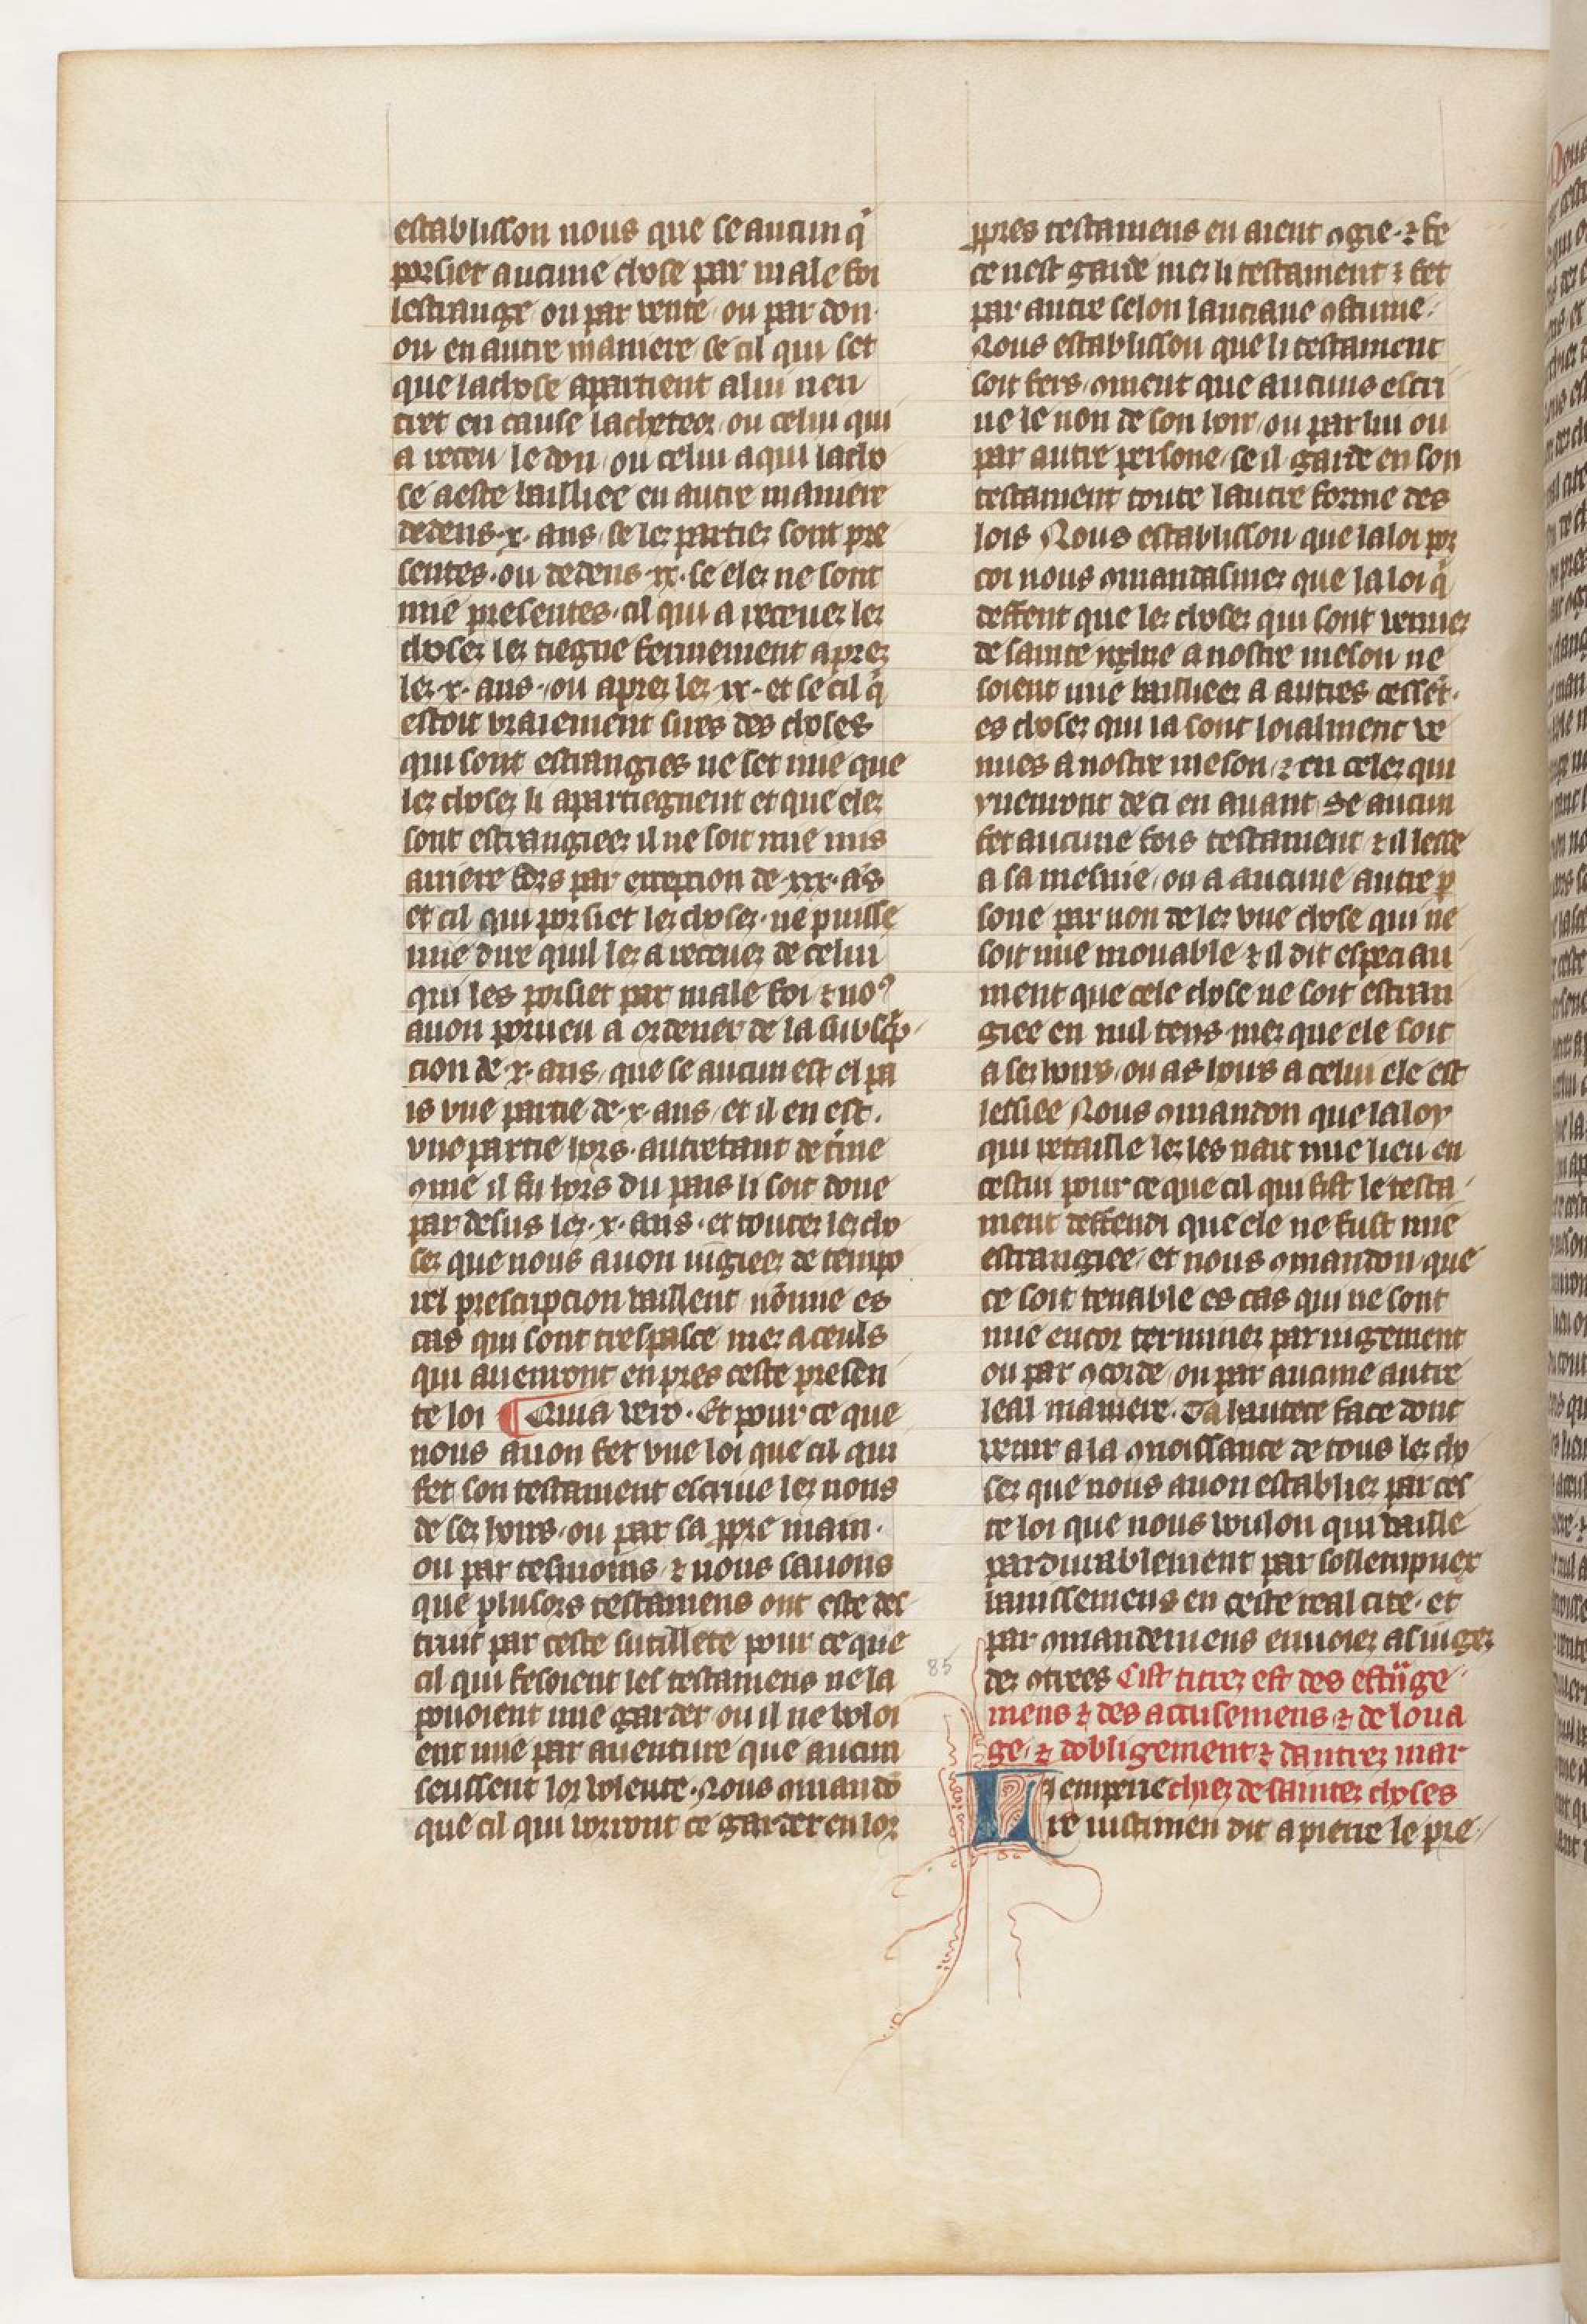 establisson nous que se aucun q̇
porsiet aucune chose par male foi
lestrange ou par vente ou par don
ou en autre maniere se cil qui set
que la chose apartient a lui nen
tret en cause lacheteor ou celui qui
a receu le don ou celui a qui la cho
se a este bailliee en autre maniere
dedens .x. ans se les parties sont pre
sentes. ou dedens .xx. se eles ne sont
mie presentes. cil qui a receues les
choses les tiegne fermement apres
les .x. ans. ou apres les .xx. et se cil q̇
estoit vraiement sires des choses
qui sont estrangies ne set mie que
les choses li apartiegnent et que eles
sont estrangiees il ne soit mie mis
arriere fors par exception de .xxx. ās
et cil qui porsiet les choses. ne puisse
mie dire quil les a receues de celui
qui les porsiet par male foi ⁊ noꝰ
auon porueu a ordener de la subscp̄
cion de .x. ans que se aucun est el pa
is vne partie de .x. ans et il en est.
vne partie hors. autretant de tine
ꝯme il fu hors du pais li soit done
par desus les .x. ans. et toutes les cho
ses que nous auon iugiees de tempo
rel prescripcion vaillent nōmie es
cas qui sont trespasse mes a ceuls
qui auenront en pres ceste presen
te loi ¶ Quia vero. Et pour ce que
nous auon fet vne loi que cil qui
fet son testament escriue les nons
de ses hoirs. ou par sa ꝓpre main.
ou par tesmoins ⁊ nous sauons
que plusors testamens ont este des
truit par ceste sutillete pour ce que
cil qui fesoient les testamens ne la
pouoient mie garder ou il ne voloi
ent mie par auenture que aucun
seussent lor volente. Nous ꝯmandō
que cil qui vorront ce garder en lor
ꝓpres testamens en aient ꝯgie. ⁊ se
ce nest garde mes li testament ⁊ fet
par autre selon lanciane ꝯstume.
Nous establisson que li testament
soit fers ꝯment que aucuns escri
ue le non de son hoir ou par lui ou
par autre persone se il garde en son
testament toute lautre forme des
lois Nous establisson que la loi por
coi nous ꝯmandasmes que la loi q̇
deffent que les choses qui sont venues
de sainte iglise a nostre meson ne
soient mie bailliees a autres cessēt.
es choses qui ia sont loialment ve
nues a nostre meson ⁊ en celes qui
vuenront deci en auant Se aucun
fet aucune fois testament ⁊ il lesse
a sa mesnie ou a aucune autre ꝑ
sone par non de les vne chose qui ne
soit mie mouable ⁊ il dit especiau
ment que cele chose ne soit estran
giee en nul tens mes que ele soit
a ses hoirs ou as hoirs a celui ele est
lessiee Nous ꝯmandon que la loy
qui retaille les les nait mie lieu en
cestui pour ce que cil qui fist le testa
ment deffendi que ele ne fust mie
estrangiee et nous ꝯmandon que
ce soit tenable es cas qui ne sont
mie encor termines par iugement
ou par ꝯcorde ou par aucune autre
leal maniere. Ta hautece face dont
venir a la ꝯnoissance de tous les cho
ses que nous auon establies par ces
te loi que nous voulon qui vaille
pardurablement par sollempnex
banissemens en ceste real cite. et
par ꝯmandemens enuoies as iuges
des ꝯtrees Cist titres est des estrūge
mens ⁊ des acensemens ⁊ de loua
ge. ⁊ dobligement ⁊ dautres mar
i empere chies de saintes choses
L re iustinien dit a pierre le pre
85